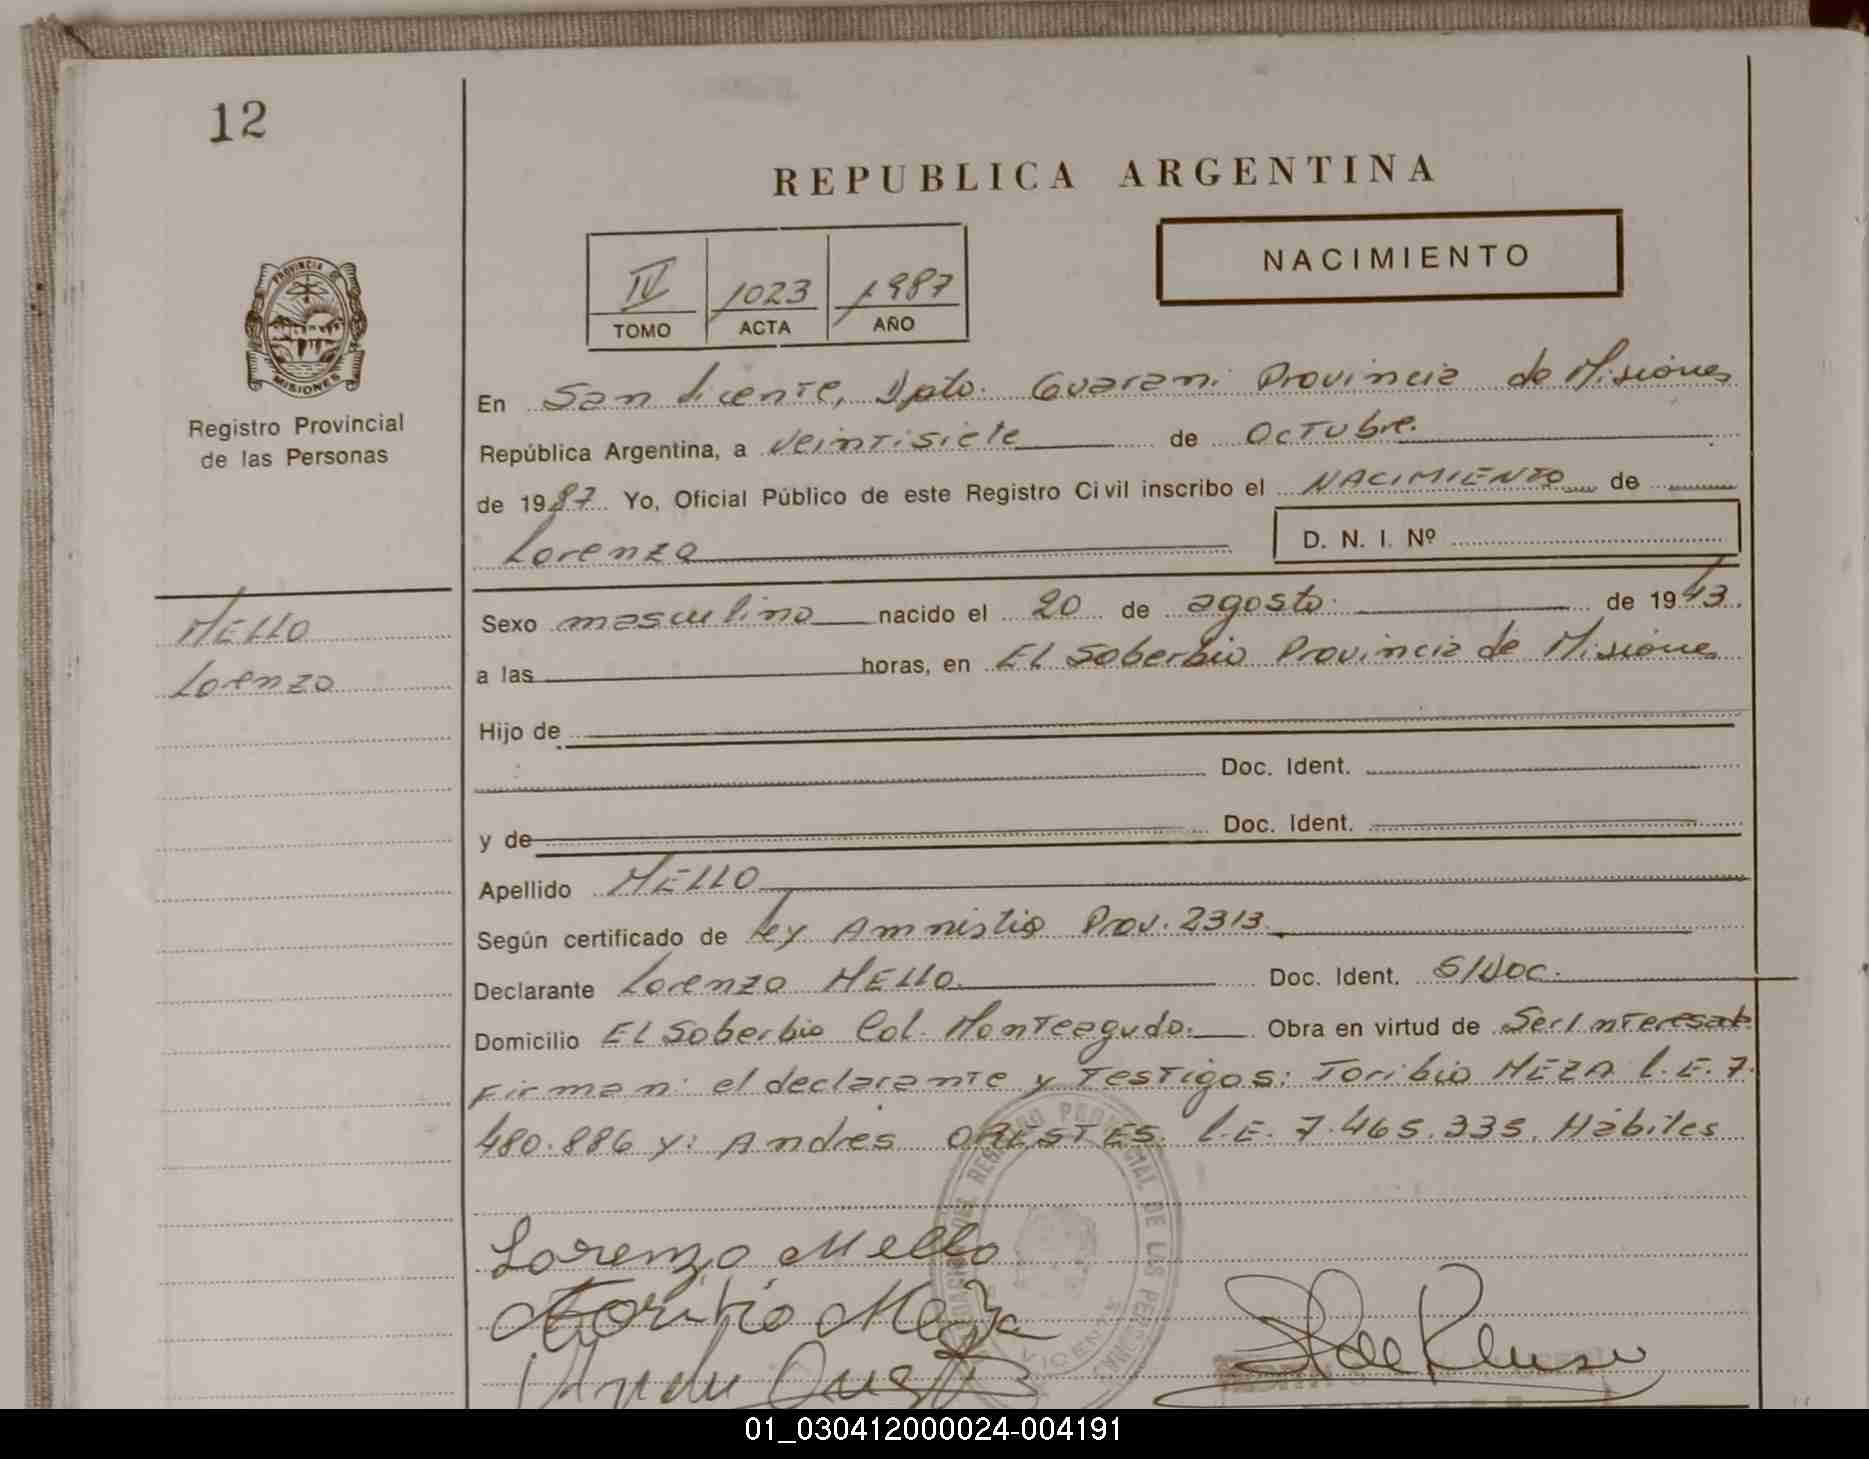 12
REPUBLICA ARGENTINA
IV 1023 1987
TOMO ACTA AÑO
NACIMIENTO
PROVINCIA DE
MISIONES
Registro Provincial
de las Personas
En San Vicente, Dpto. Guarani Provincia de Misiones
República Argentina, a veintisiete de octubre.
de 1987. Yo, Oficial Público de este Registro Civil inscribo el NACIMIENTO de
Lorenzo
D. N. I. Nº
MELLO
Lorenzo
Sexo masculino nacido el 20 de agosto de 1943.
a las horas, en El Soberbio Provincia de Misiones
Hijo de
Doc. Ident.
y de Doc. Ident.
Apellido MELLO
Según certificado de Ley Amnistia Prov. 2313.
Declarante Lorenzo MELLO. Doc. Ident. S/Doc.
Domicilio El Soberbio Col. Monteagudo. Obra en virtud de Ser Interesad
Firman: el declarante y Testigos: Toribio MEZA L.E. 7.
480.886 y: Andres ORESTES L.E. 7.465.335. Hábiles
REGISTRO PROVINCIAL DE LAS PERSONAS
VICENTE
Lorenzo Mello
Toribio Meza
01_030412000024-004191